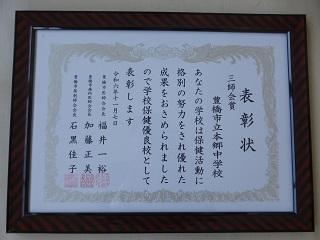 表彰状
三師会賞
豊橋市立本郷中学校
あなたの学校は保健活動に
格別の努力をされ優れた
成果をおさめられました
ので学校保健優良校として
表彰します
令和六年十一月七日
豊橋市医師会会長 福井一裕
豊橋市歯科医師会会長 加藤正美
豊橋市薬剤師会会長 石黒佳子